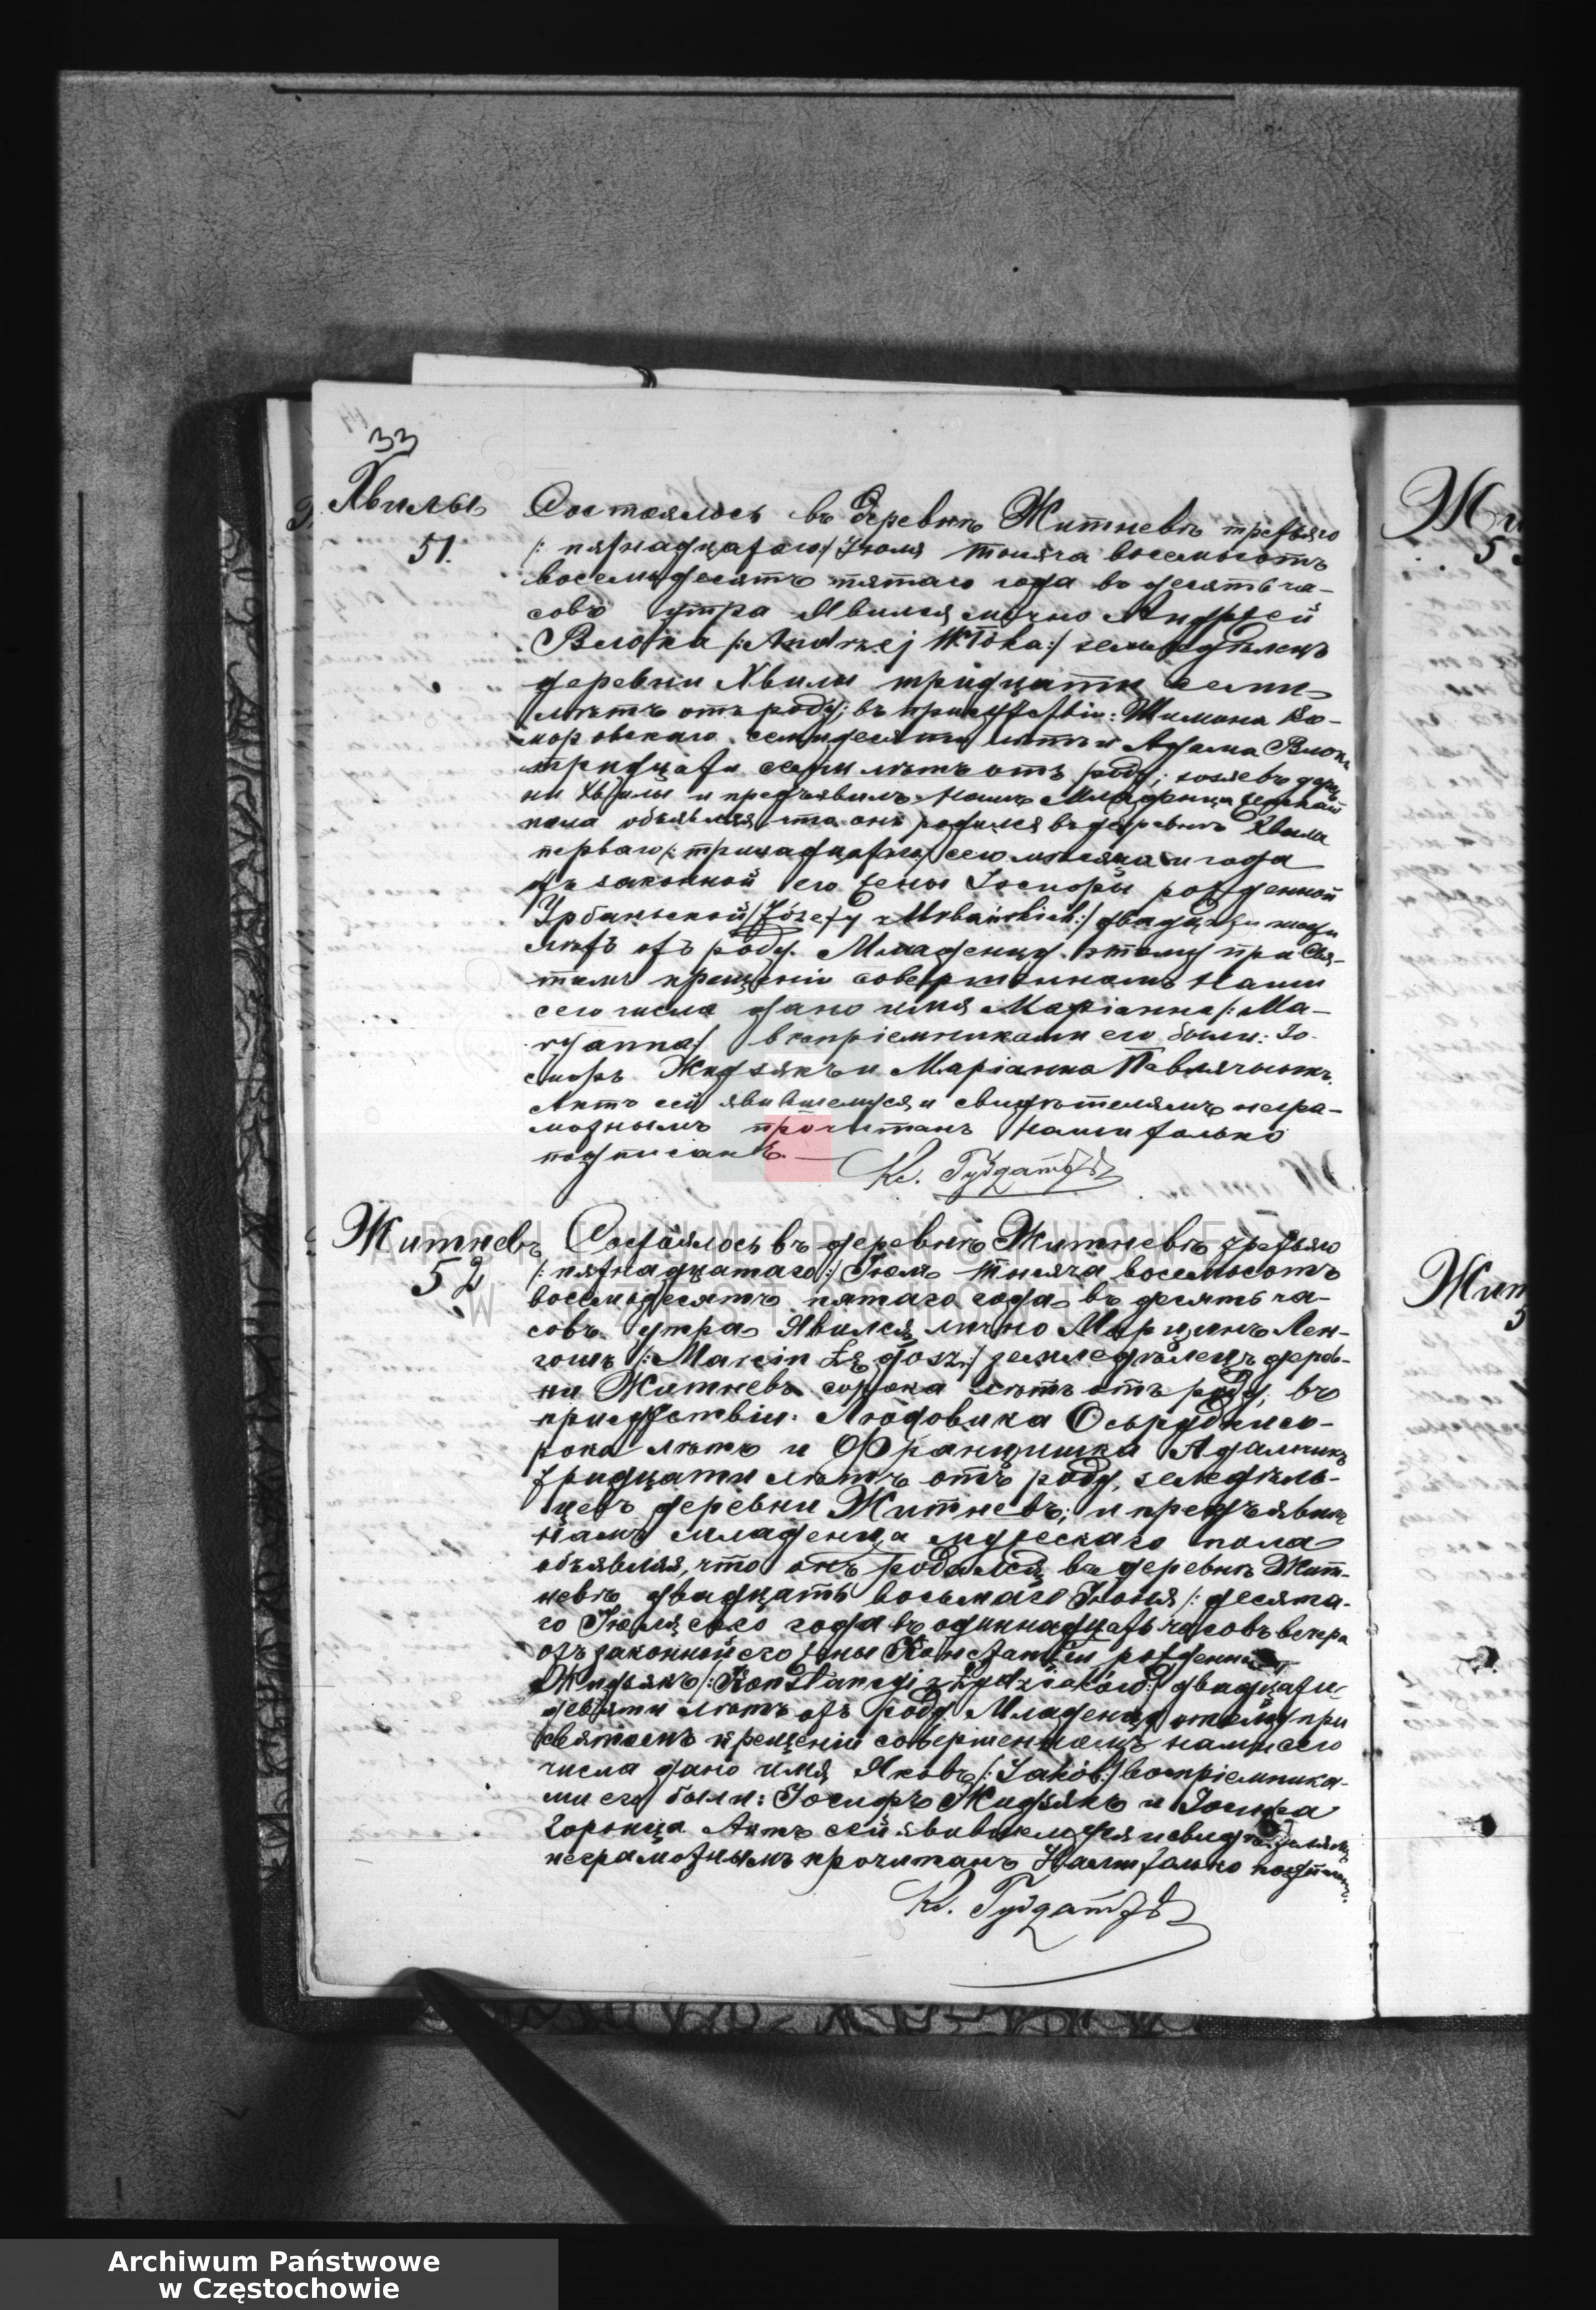 33
Хвилы
51.
Состоялось въ деревнѣ Житневѣ третьяго
/: пятнадцатаго :/ Іюля тысяча восемьсотъ
восемьдесятъ пятаго года въ десять ча-
совъ утра Явился лично Андрей
Влока /: Andrzej Włóka :/ земледѣлецъ
деревни Хвилы тридцати семи
лѣтъ отъ роду; въ присутствіи: Шимона Ко-
моровскаго семидесяти лѣтъ и Адама Влоки
тридцати семи лѣтъ отъ роду;
ни Хвилы и предъявилъ намъ Младенца женскаго
пола объявляя, что онъ родился въ деревнѣ Хвила
перваго /: тринадцатаго :/ сего мѣсяца и года
отъ законной его жены Іосифы рожденной
Урбаньской /: Józefy z Urbańskich :/ двадцати
лѣтъ отъ роду. Младенцу этому при Свя-
томъ крещеніи совершенномъ Нами
сего числа дано имя Маріанна /: Ma-
ryanna :/ воспріемниками его были: Іо-
сифъ Жидзякъ и Маріанна Павлячыкъ.
Актъ сей явившемуся и свидѣтелямъ негра-
мотнымъ прочитанъ Нами только
подписанъ.
Кс.
Житневъ
52
Состоялось въ деревнѣ Житневѣ третьяго
/: пятнадцатаго :/ Іюля тысяча восемьсотъ
восемьдесятъ пятаго года въ десять ча-
совъ утра Явился лично Марцинъ Лен-
гошъ /: Marcin Łęgosz :/ земледѣлецъ дерев-
ни Житневъ сорока лѣтъ отъ роду, въ
присутствіи: Людовика Осьрудки со-
рока лѣтъ и Францишка Адамчикъ
тридцати лѣтъ отъ роду, земледѣль-
цевъ деревни Житневъ; и предъявилъ
Намъ младенца мужескаго пола
объявляя, что онъ родился въ деревнѣ Жит-
невѣ двадцать восьмаго Іюня /: десята-
го Іюля сего года въ одиннадцать часовъ вечера
отъ законной его жены Констанціи рожденной
Жидзякъ /: Konstancji z Żydziaków :/ двадцати
девяти лѣтъ отъ роду Младенцу этому при
святомъ крещеніи совершенномъ нами сего
числа дано имя Яковъ /: Jakób :/ воспріемника-
ми его были: Іосифъ Жидзякъ и Іосифа
Горонца Актъ сей явившемуся и свидѣтелямъ
неграмотнымъ прочитанъ Нами только подписанъ.
Кс.
Жит
5
ARCHIWUM PAŃSTWOWE
W CZĘSTOCHOWIE
Archiwum Państwowe
w Częstochowie